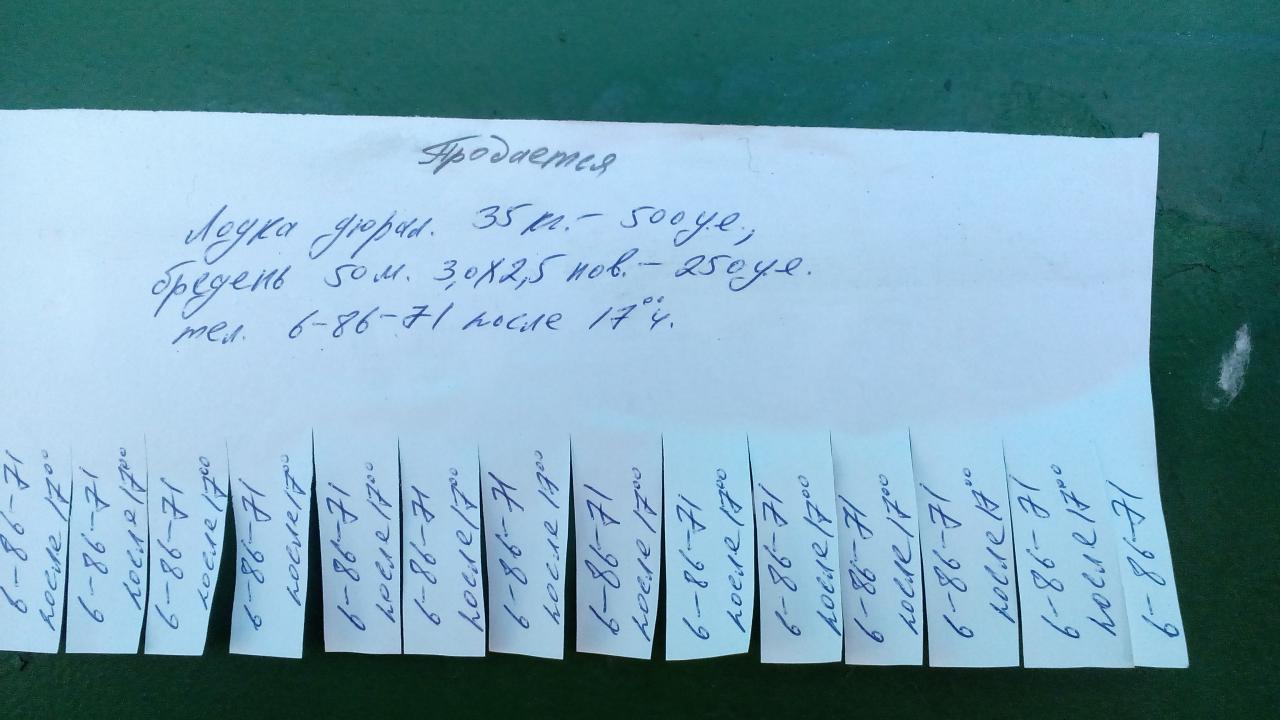 Продается
Лодка дюрал. 35 кг. – 500 у.е.,
бредень 50 м. 3,0х2,5 нов. – 250 у.е.
тел. 6-86-71 после 17⁰⁰ч.
6-86-71
после 17⁰⁰
6-86-71
после 17⁰⁰
6-86-71
после 17⁰⁰
6-86-71
после 17⁰⁰
6-86-71
после 17⁰⁰
6-86-71
после 17⁰⁰
6-86-71
после 17⁰⁰
6-86-71
после 17⁰⁰
6-86-71
после 17⁰⁰
6-86-71
после 17⁰⁰
6-86-71
после 17⁰⁰
6-86-71
после 17⁰⁰
6-86-71
после 17⁰⁰
6-86-71